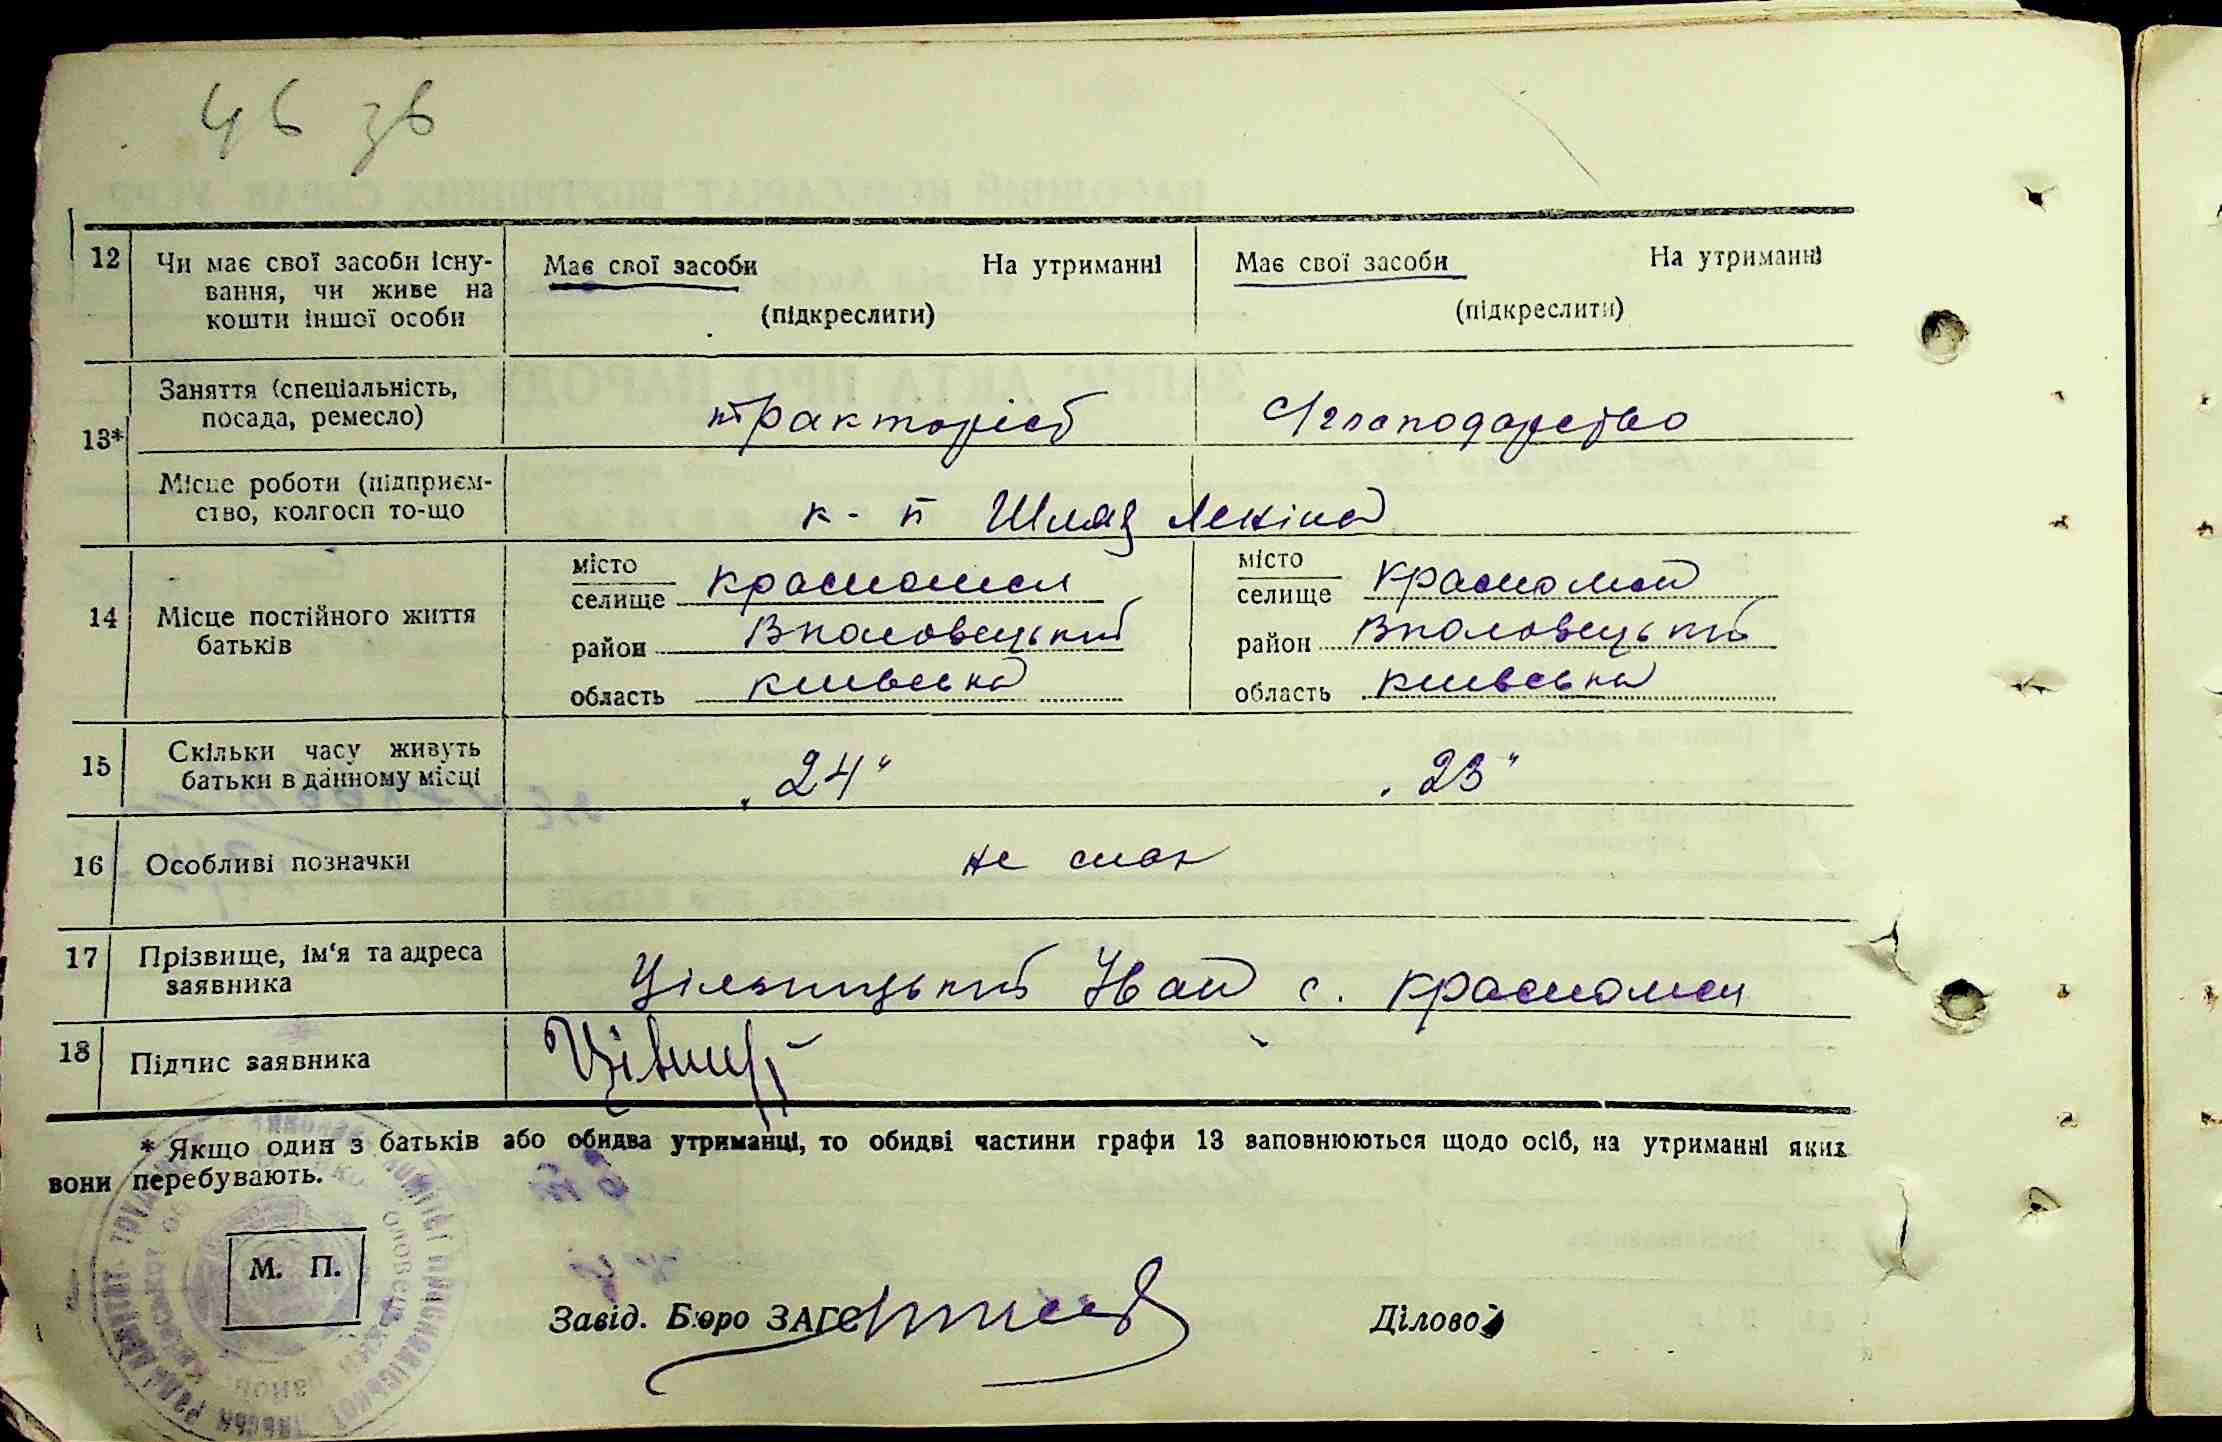 46 зв
12 Чи має свої засоби існу- Має свої засоби На утриманні Має свої засоби На утриманні
вання, чи живе на
кошти іншої особи (підкреслити) (підкреслити)
Заняття (спеціальність,
посада, ремесло) тракторіст С/господарство
13*
Місце роботи (підприєм-
ство, колгосп то-що к-п Шлях Леніна
місто місто
селище Красноліси селище Красноліси
14 Місце постійного життя
батьків район Вполовецький район Вполовецький
область київська область київська
15 Скільки часу живуть
батьки в данному місці „24" „23"
16 Особливі позначки не має
17 Прізвище, ім'я та адреса
заявника Іван с. Красноліси
18 Підпис заявника
* Якщо один з батьків або обидва утриманці, то обидві частини графи 13 заповнюються щодо осіб, на утриманні яких
вони перебувають.
М. П.
Завід. Бюро ЗАГС Діловод